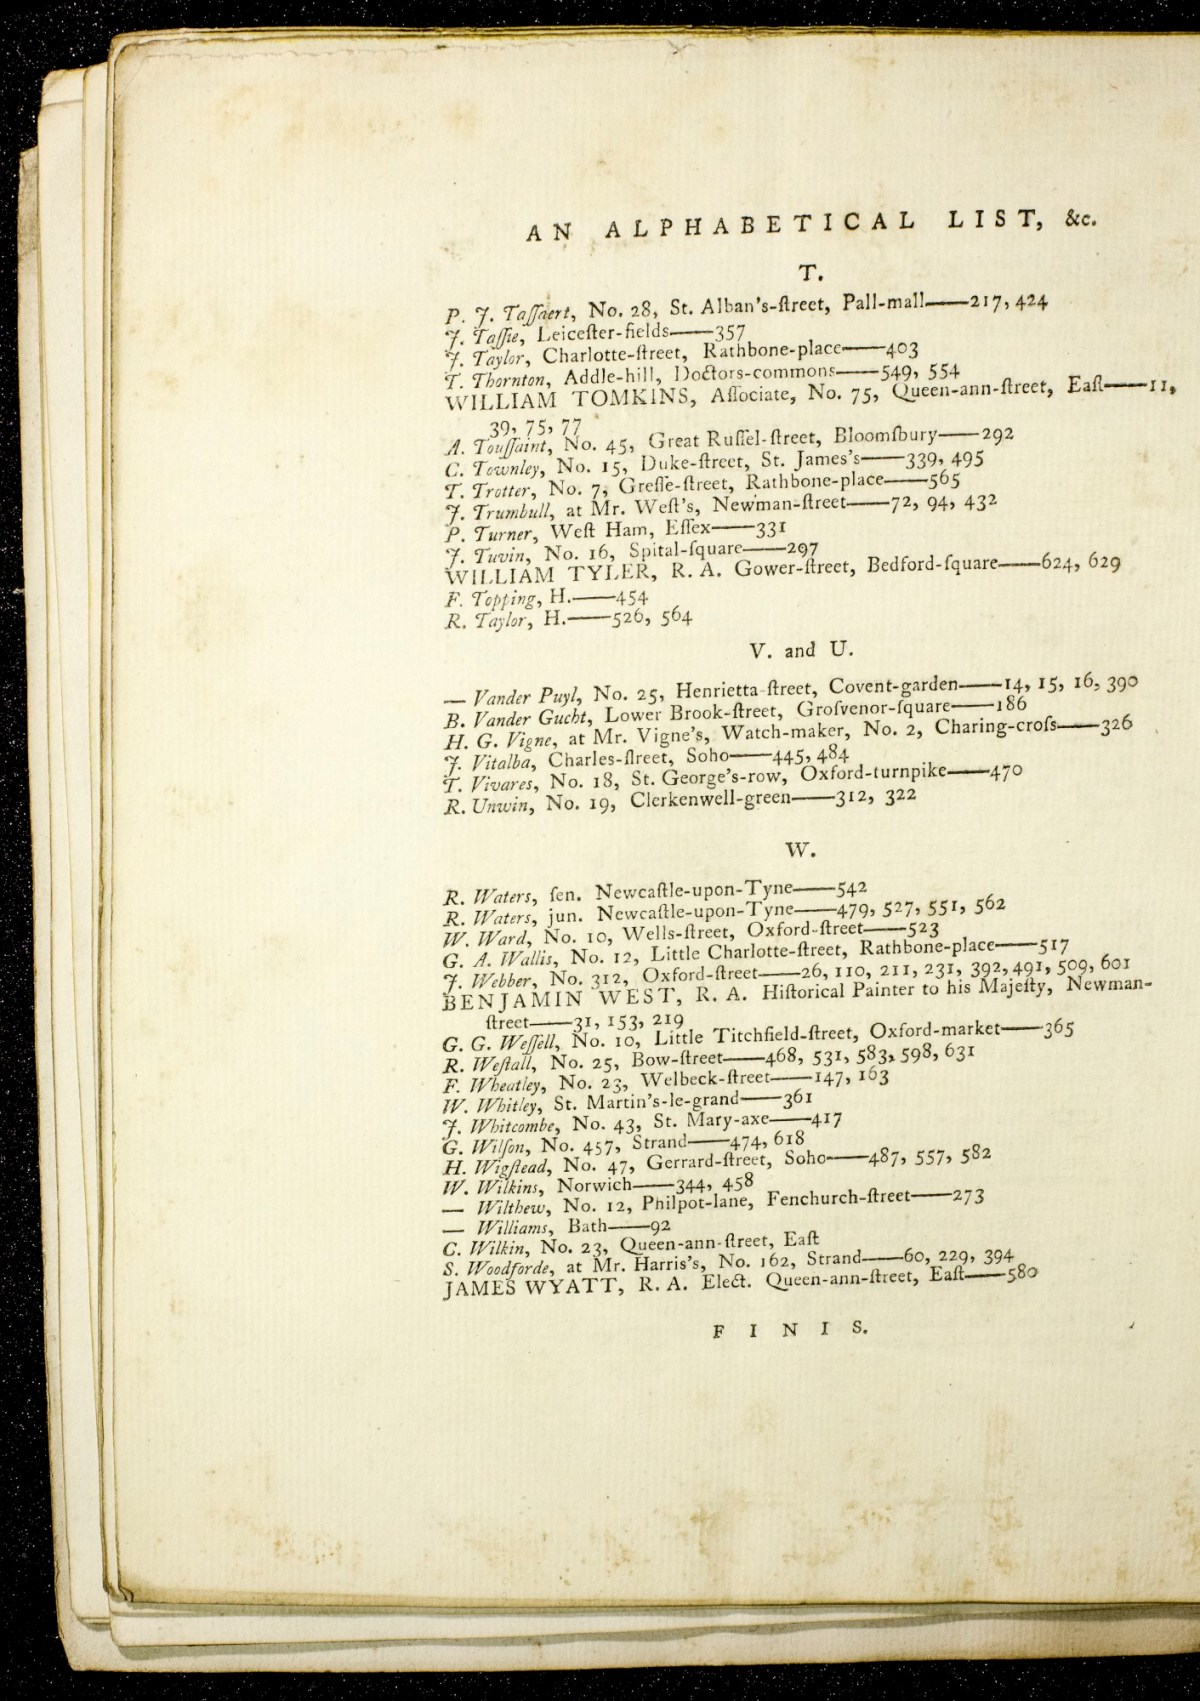 AN ALPHABETICAL LIST, &c.
T.
P. J. Taſſaert, No. 28, St. Alban's-ſtreet, Pall-mall——217, 424
J. Taſſie, Leiceſter-fields——357
J. Taylor, Charlotte-ſtreet, Rathbone-place——403
T. Thornton, Addle-hill, Doctors-commons——549, 554
WILLIAM TOMKINS, Aſſociate, No. 75, Queen-ann-ſtreet, Eaſt——11,
39, 75, 77
A. Touſſaint, No. 45, Great Ruſſel-ſtreet, Bloomſbury——292
C. Townley, No. 15, Duke-ſtreet, St. James's——339, 495
T. Trotter, No. 7, Greſſe-ſtreet, Rathbone-place——565
J. Trumbull, at Mr. Weſt's, Newman-ſtreet——72, 94, 432
P. Turner, Weſt Ham, Eſſex——331
J. Tuvin, No. 16, Spital-ſquare——297
WILLIAM TYLER, R. A. Gower-ſtreet, Bedford-ſquare——624, 629
F. Topping, H.——454
R. Taylor, H.——526, 564
V. and U.
— Vander Puyl, No. 25, Henrietta-ſtreet, Covent-garden——14, 15, 16, 390
B. Vander Gucht, Lower Brook-ſtreet, Groſvenor-ſquare——186
H. G. Vigne, at Mr. Vigne's, Watch-maker, No. 2, Charing-croſs——326
J. Vitalba, Charles-ſtreet, Soho——445, 484
T. Vivares, No. 18, St. George's-row, Oxford-turnpike——470
R. Unwin, No. 19, Clerkenwell-green——312, 322
W.
R. Waters, ſen. Newcaſtle-upon-Tyne——542
R. Waters, jun. Newcaſtle-upon-Tyne——479, 527, 551, 562
W. Ward, No. 10, Wells-ſtreet, Oxford-ſtreet——523
G. A. Wallis, No. 12, Little Charlotte-ſtreet, Rathbone-place——517
J. Webber, No. 312, Oxford-ſtreet——26, 110, 211, 231, 392, 491, 509, 601
BENJAMIN WEST, R. A. Hiſtorical Painter to his Majeſty, Newman-
ſtreet——31, 153, 219
G. G. Weſſell, No. 10, Little Titchfield-ſtreet, Oxford-market——365
R. Weſtall, No. 25, Bow-ſtreet——468, 531, 583, 598, 631
F. Wheatley, No. 23, Welbeck-ſtreet——147, 163
W. Whitley, St. Martin's-le-grand——361
J. Whitcombe, No. 43, St. Mary-axe——417
G. Wilſon, No. 457, Strand——474, 618
H. Wigſtead, No. 47, Gerrard-ſtreet, Soho——487, 557, 582
W. Wilkins, Norwich——344, 458
— Wilthew, No. 12, Philpot-lane, Fenchurch-ſtreet——273
— Williams, Bath——92
C. Wilkin, No. 23, Queen-ann-ſtreet, Eaſt
S. Woodforde, at Mr. Harris's, No. 162, Strand——60, 229, 394
JAMES WYATT, R. A. Elect. Queen-ann-ſtreet, Eaſt——580
FINIS.